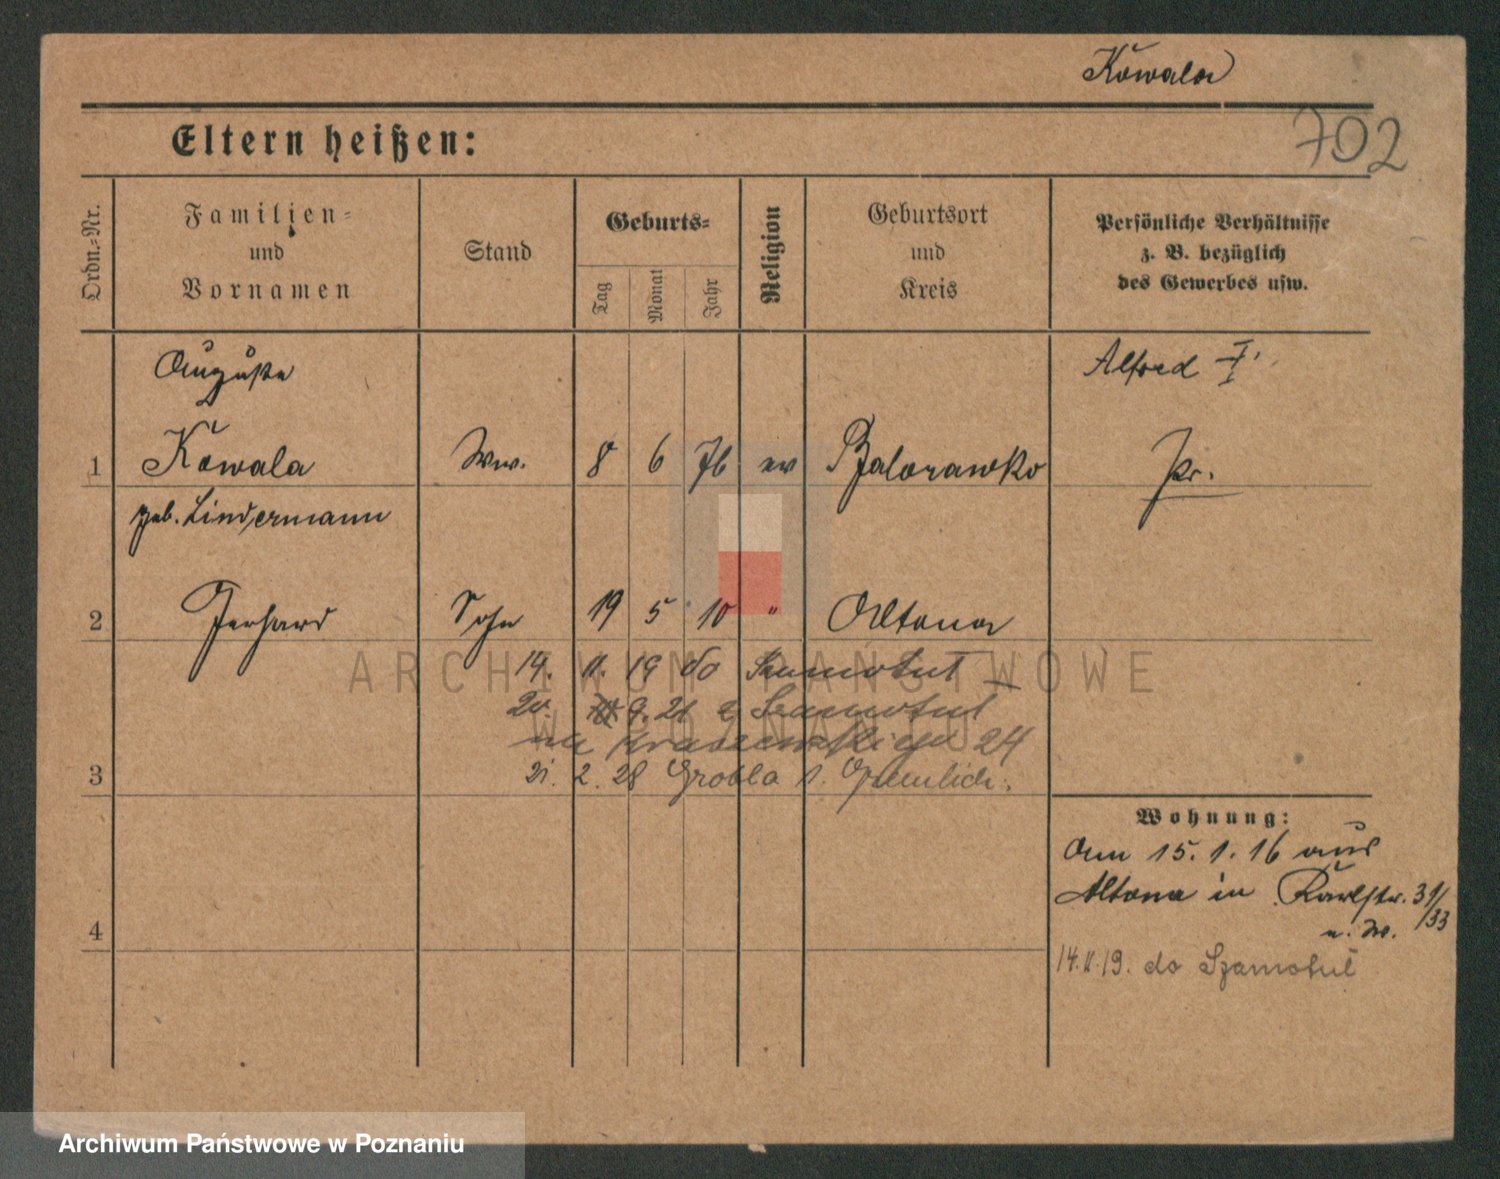 Kowala
702
Eltern heißen:
Ordn.-Nr.
Familien-
und
Vornamen
Stand
Geburts-
Tag
Monat
Jahr
Religion
Geburtsort
und
Kreis
Persönliche Verhältnisse
z. B. bezüglich
des Gewerbes usw.
Auguste
Alfred
1 Kowala Ww. 8 6 76 ev Pr.
geb. Lindermann
2 Gerhard Sohn 19 5 10 " Altona
14. 11. 19 do Szamotuł
20. 9. 21 z Szamotuł
na Kraszewskiego 24
3 21. 2. 28 Grobla 1.
Wohnung:
Am 15. 1. 16 aus
Altona in Karlstr. 31/33
14.11.19. do Szamotuł
4
ARCHIWUM PAŃSTWOWE
W POZNANIU
Archiwum Państwowe w Poznaniu